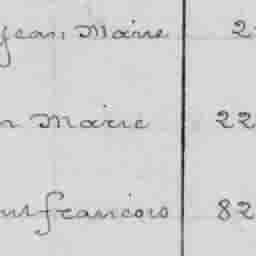 Jean Marie 2
Marie 22
francois 82